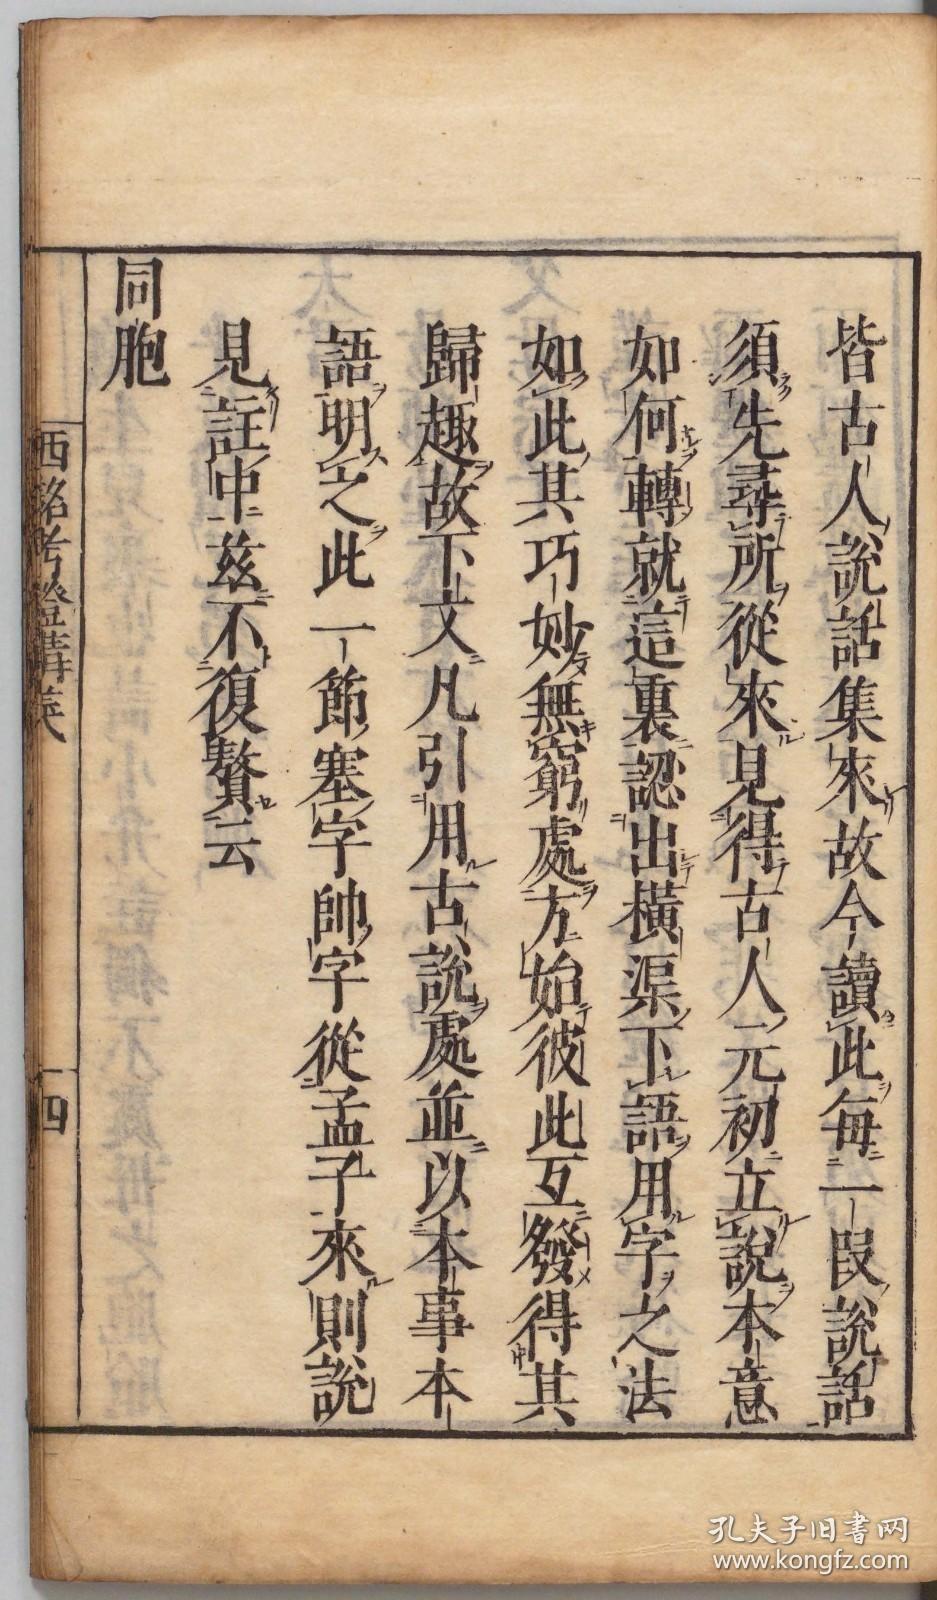 皆古人說話集來故今讀此每一段說話
須先尋所從來見得古人元初立說本意
如何轉就這裏認出橫渠下語用字之法
如此其巧妙無窮處方始彼此互發得其
歸趣故下文凡引用古說處並以本事本
語明之此一節塞字帥字從孟子來則說
見註中茲不復贅云
同胞
西銘考證講義
四
孔夫子旧书网
www.kongfz.com